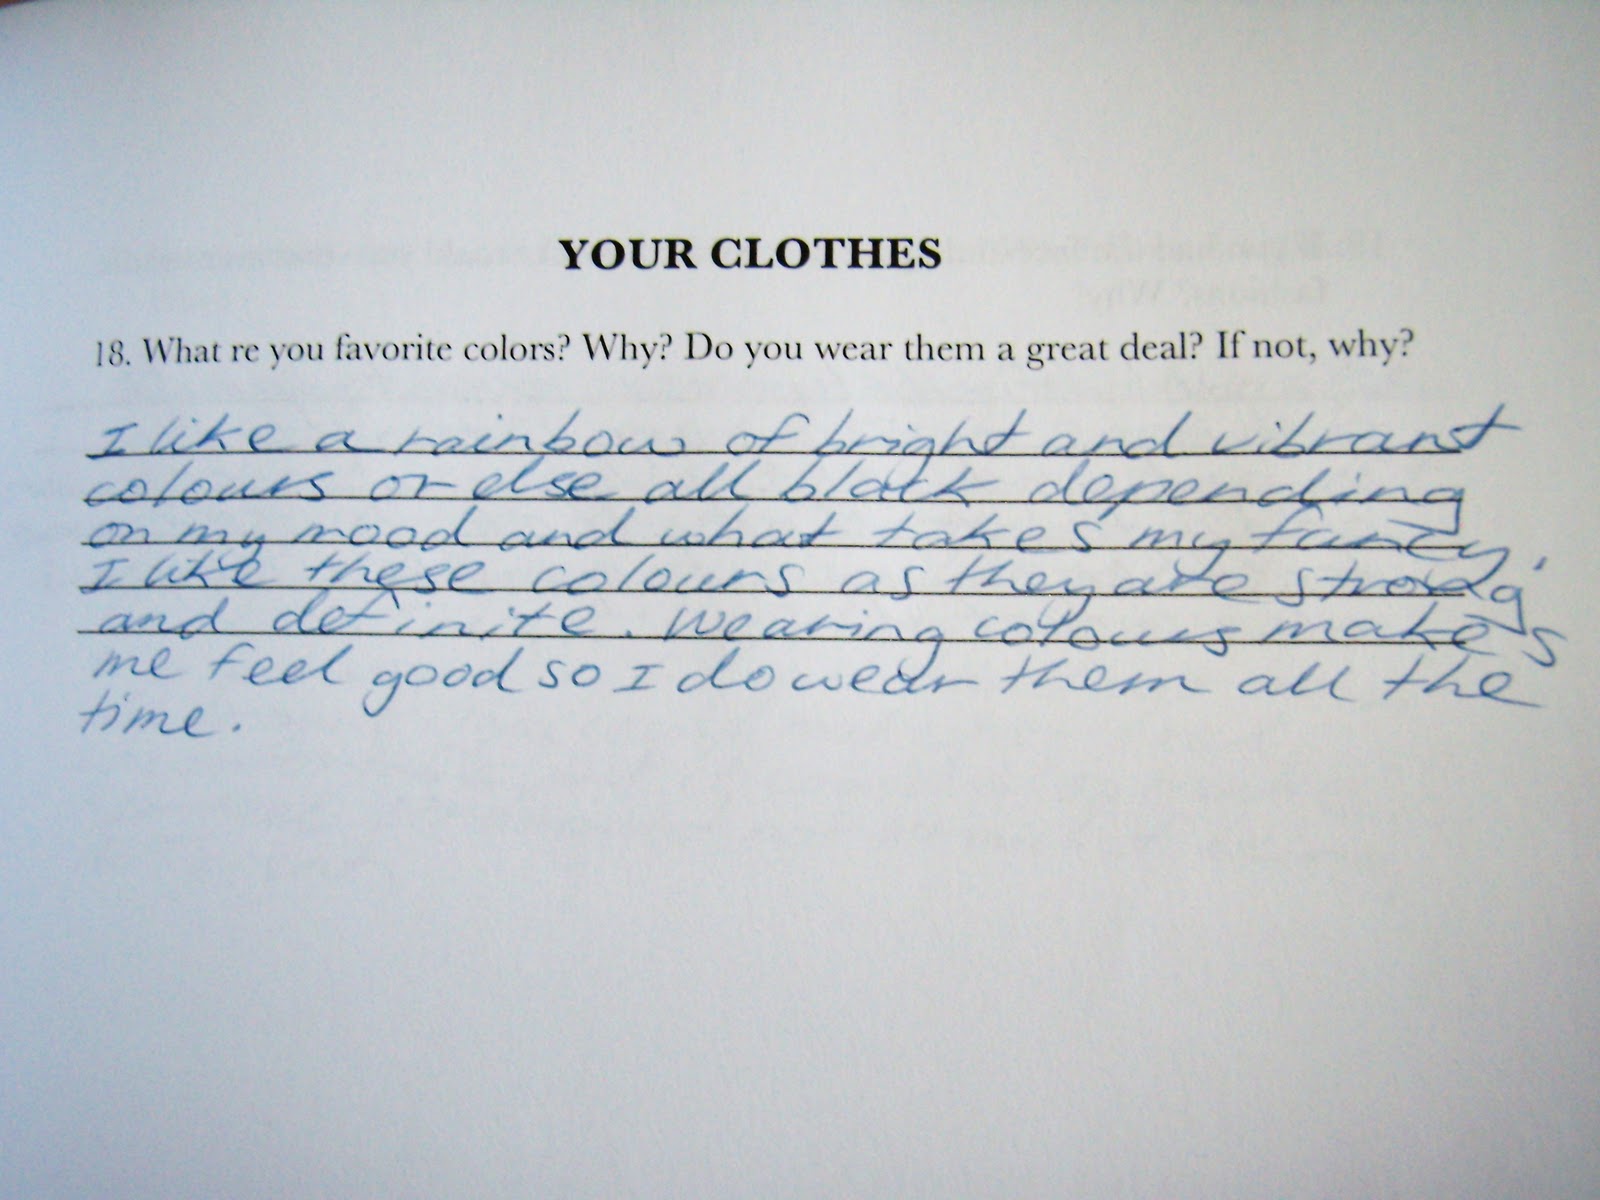 YOUR CLOTHES
18. What re you favorite colors? Why? Do you wear them a great deal? If not, why?
I like a rainbow of bright and vibrant
colours or else all black depending
on my mood and what takes my fancy.
I like these colours as they are strong
and definite. Wearing colours makes
me feel good so I do wear them all the
time.